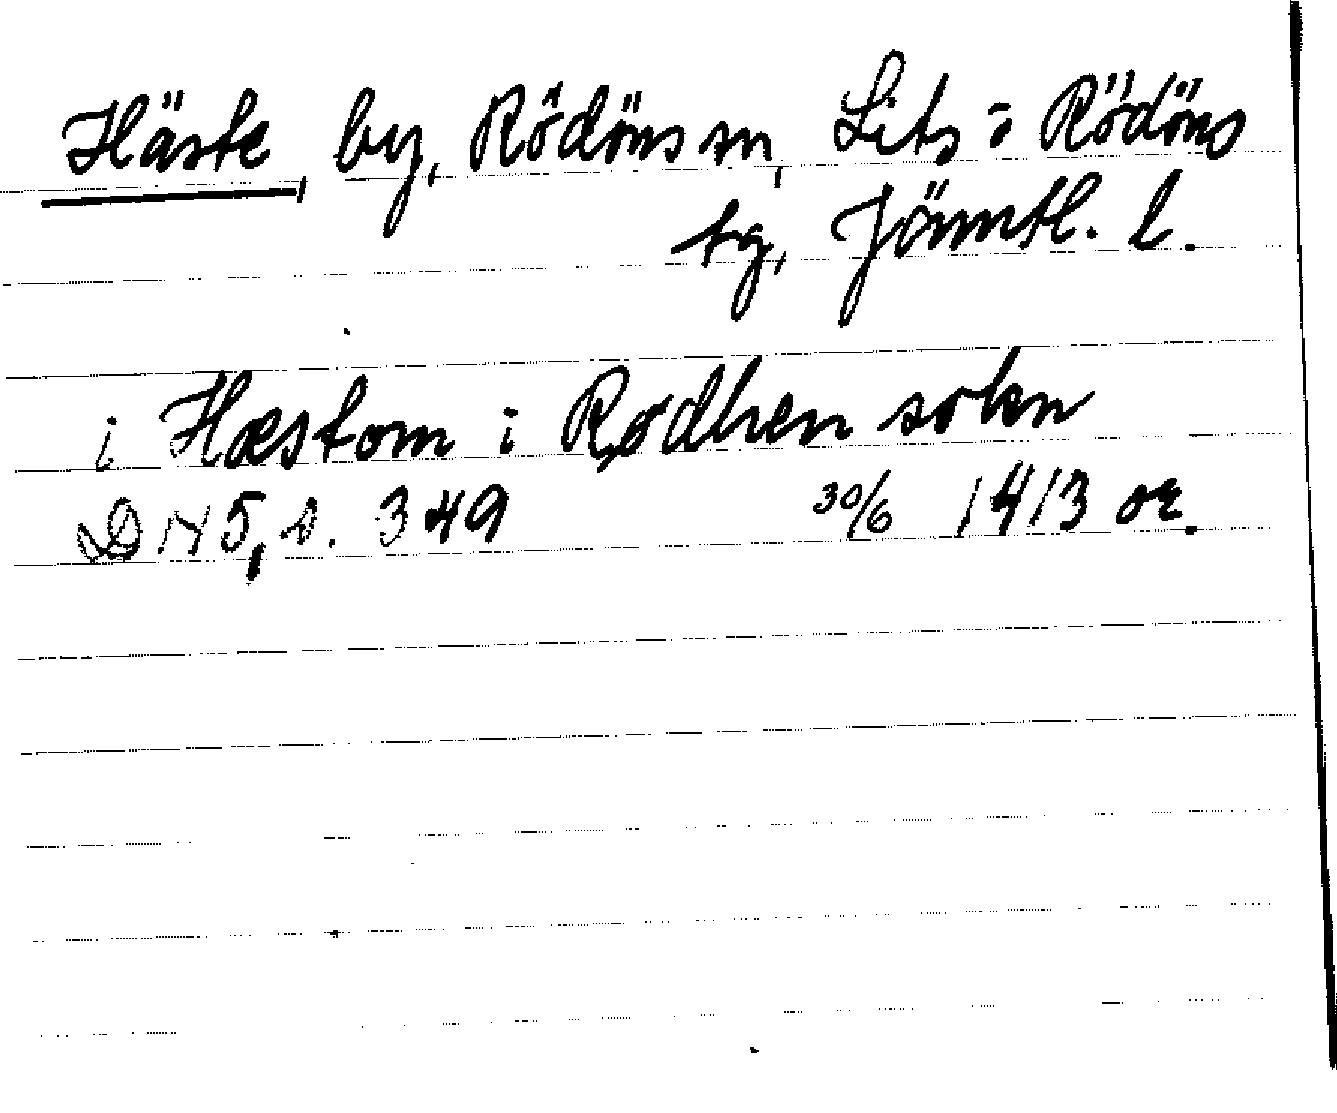 Häste, by, Rödöns sn, Lits o Rödöns
tg, Jämtl. l.
i Hæstom i Rødhen sokn
DN 5, s. 349 30/6 1413 or.